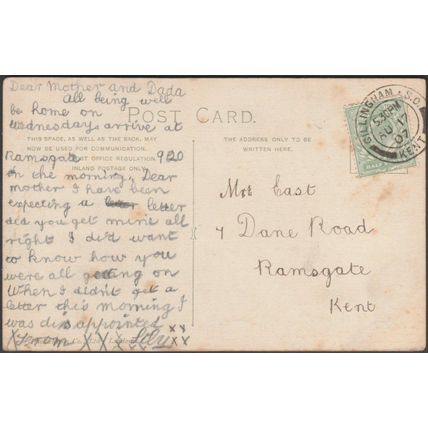 Dear Mother and Dada
All being well
be home on
Wednesday arrive at
Ramsgate 9/20
in the morning. Dear
mother I have been
expecting a letter
did you get mine all
right I did want
to know how you
were all getting on
When I didn't get a
letter this morning I
was disappointed
From X X X Lily X X X X
POST CARD.
THIS SPACE, AS WELL AS THE BACK, MAY
NOW BE USED FOR COMMUNICATION.
POST OFFICE REGULATION.
INLAND POSTAGE ONLY.
THE ADDRESS ONLY TO BE
WRITTEN HERE.
GILLINGHAM · S.O.
5.30PM
AU 17
07
KENT
Mrs East
7 Dane Road
Ramsgate
Kent